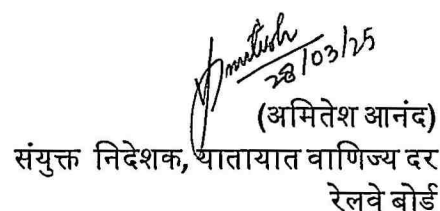 Amitesh
28/03/25
(अमितेश आनंद)
संयुक्त निदेशक, यातायात वाणिज्य दर
रेलवे बोर्ड